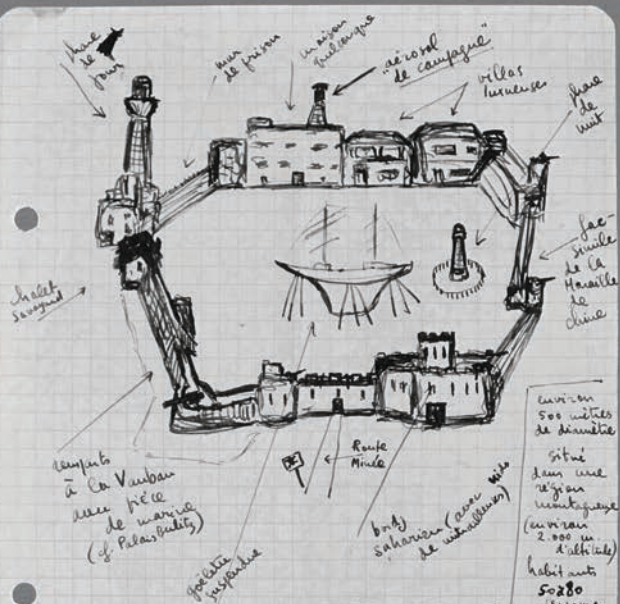 phare
de
jour
mur
de prison
maison
quelconque
"aérosol
de campagne"
villas
luxueuses
phare
de
nuit
fac-
simile
de la
Muraille
de
Chine
chalet
savoyard
remparts
à la Vauban
avec pièce
de marine
(cf Palais Bulity)
goélette
suspendue
Route
Minée
bordj
saharien (avec nids
de mitrailleuses)
environ
500 mètres
de diamètre
situé
dans une
région
montagneuse
(environ
2.000 m.
d'altitude)
habitants
50 à 80